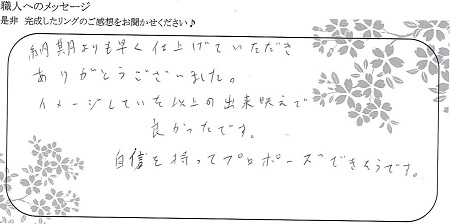 職人へのメッセージ
是非 完成したリングのご感想をお聞かせください♪
納期よりも早く仕上げていただき
ありがとうございました。
イメージしていた以上の出来映えで
良かったです。
自信を持ってプロポーズできそうです。